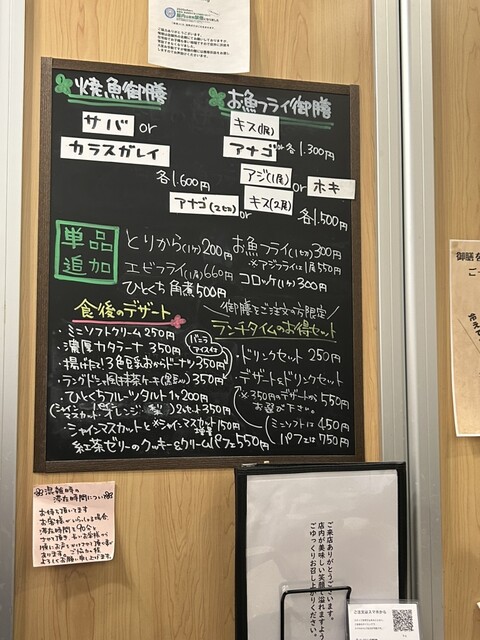 焼魚御膳
サバ or
カラスガレイ
各1.600円
お魚フライ御膳
キス(1尾)
アナゴ or 各1.300円
アジ(1尾) or ホキ
アナゴ(2切) or キス(2尾) 各1.500円
単品追加
とりから(1ヶ)200円
エビフライ(1尾)660円
ひとくち角煮500円
お魚フライ(1切)300円
※アジフライは1尾550円
コロッケ(1ヶ)300円
食後のデザート
・ミニソフトクリーム250円
・濃厚カタラーナ350円
・揚げたて!3色豆乳おからドーナツ350円
バニラアイス付
・ラングドシャ風抹茶ケーキ(黒豆入)350円
・ひとくちフルーツタルト1ヶ200円
2ヶセット350円
・シャインマスカットと
増量150円
紅茶ゼリーのクッキー&クリームパフェ550円
御膳をご注文の方限定
ランチタイムのお得セット
・ドリンクセット250円
・デザート&ドリンクセット
※350円のデザートからお選び下さい。
550円
ミニソフトは450円
パフェは750円
混雑時の
滞在時間について
お待ち頂いてます
お客様がいらっしゃる場合、
滞在時間を90分と
させて頂き、
ご来店ありがとうございます。
店内が美味しい笑顔で溢れますよう
ごゆっくりお召し上がりください。
ご注文はスマホから
御膳を